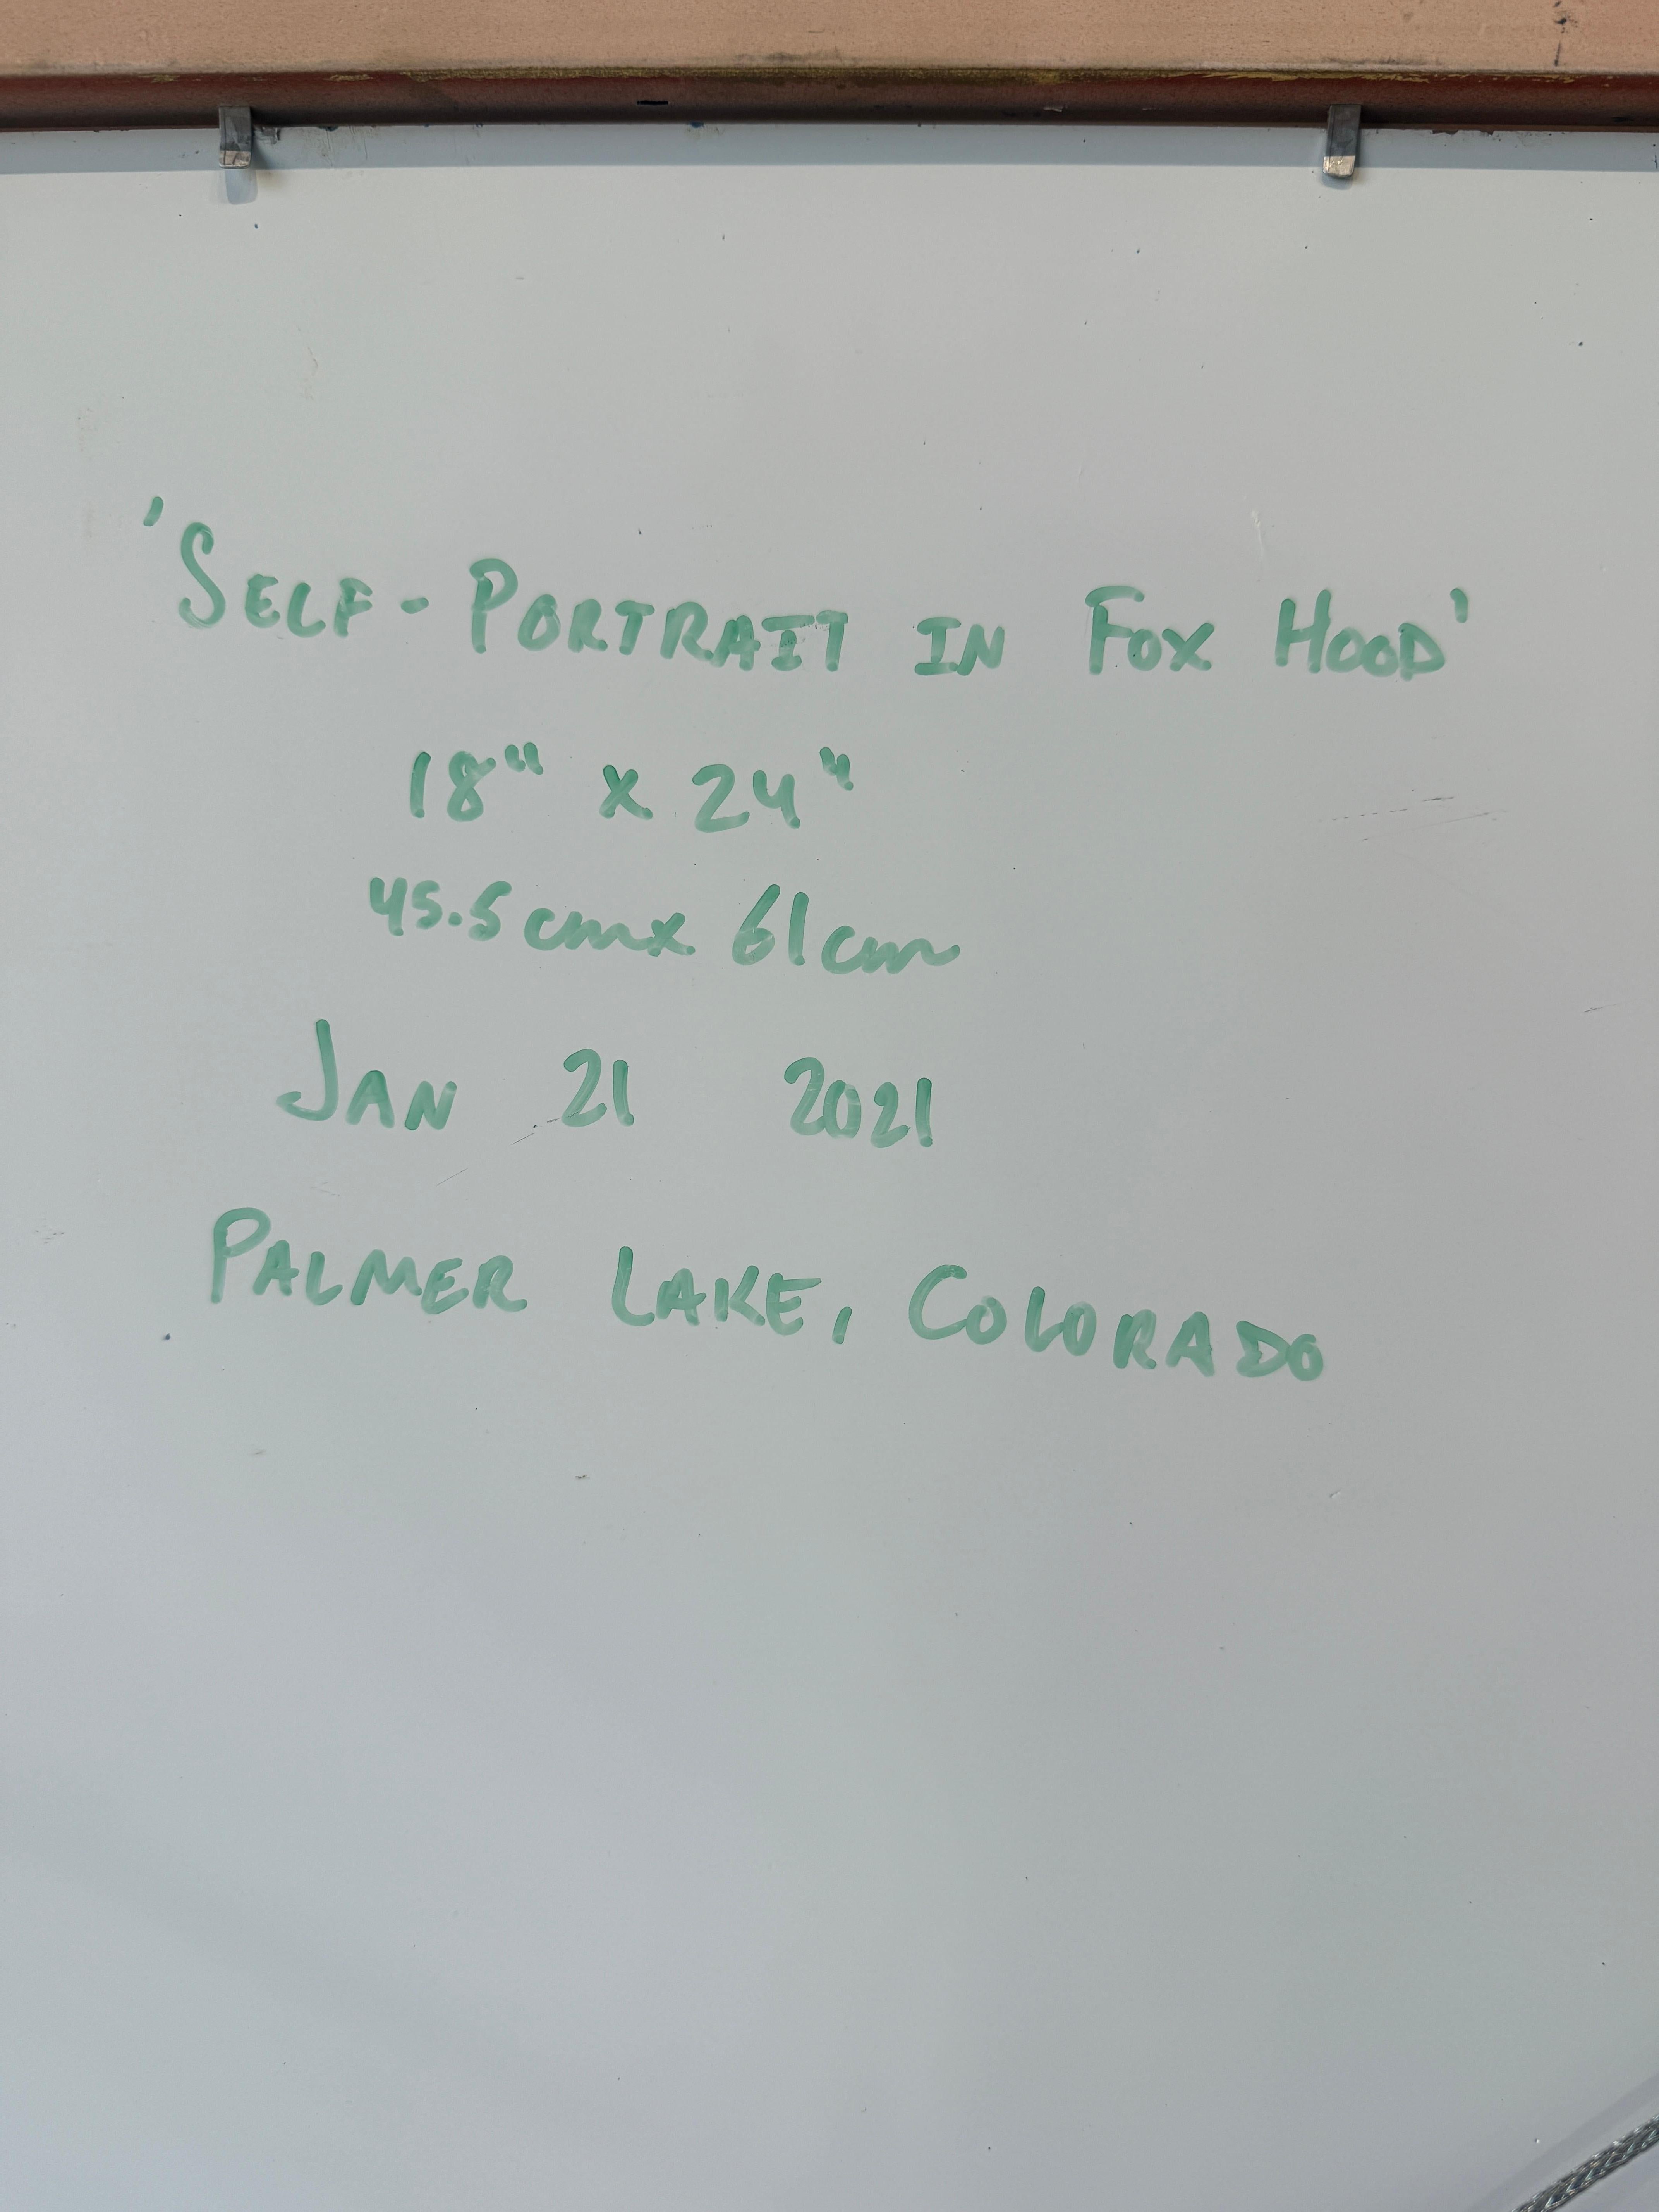 'SELF-PORTRAIT IN FOX HOOD'
18" x 24"
45.5cm x 61cm
JAN 21 2021
PALMER LAKE, COLORADO